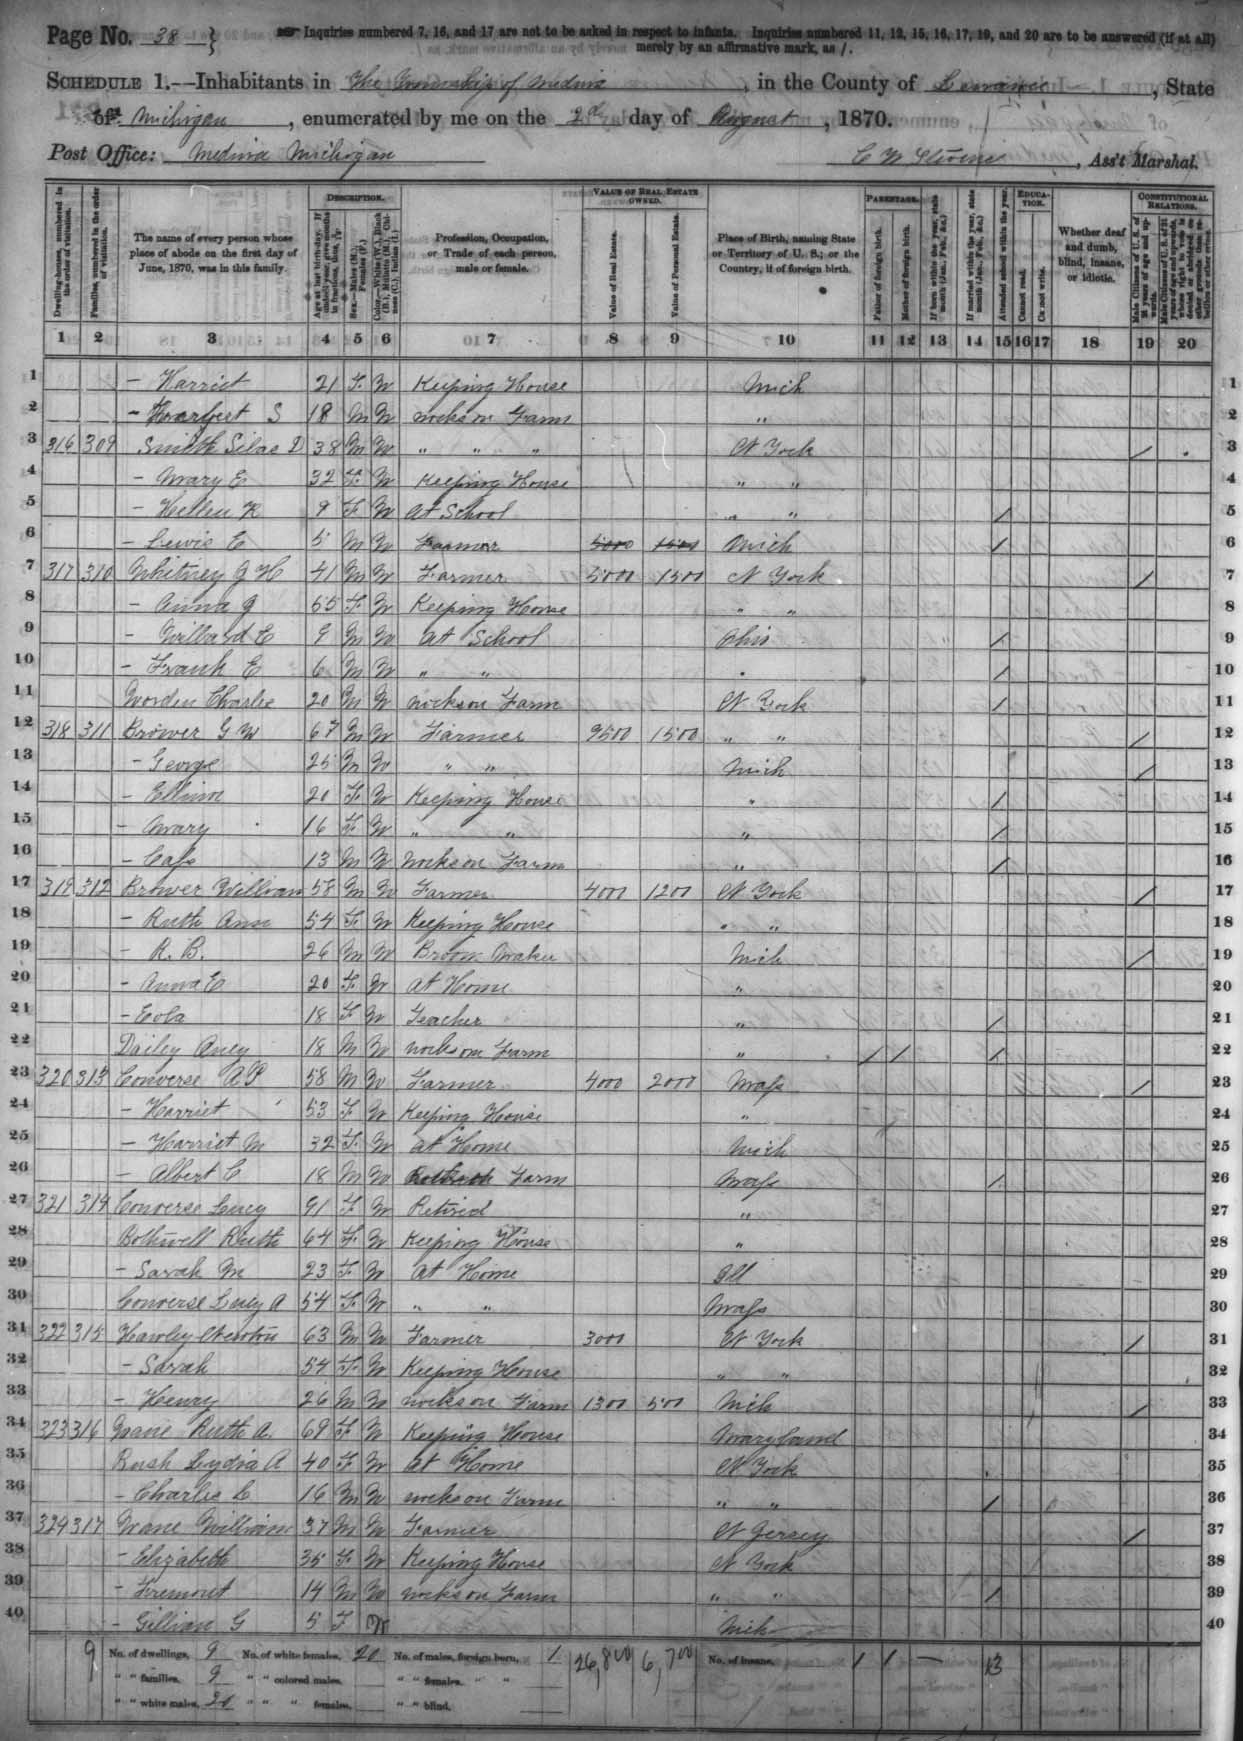 Page No. 38
Inquiries numbered 7, 16, and 17 are not to be asked in respect to infants. Inquiries numbered 11, 12, 15, 16, 17, 19, and 20 are to be answered (if at all)
merely by an affirmative mark, as /.
SCHEDULE 1.—Inhabitants in The Township of Medina, in the County of Lenawee, State
of Michigan, enumerated by me on the 2d day of August, 1870.
Post Office: Medina Michigan
C W Stevens, Ass't Marshal.
Dwelling-houses, numbered in the order of visitation.
Families, numbered in the order of visitation.
The name of every person whose place of abode on the first day of June, 1870, was in this family.
DESCRIPTION.
Age at last birth-day. If under 1 year, give months in fractions, thus, 3/12
Sex.—Males (M.), Females (F.)
Color.—White (W.), Black (B.), Mulatto (M.), Chinese (C.), Indian (I.)
Profession, Occupation, or Trade of each person, male or female.
VALUE OF REAL ESTATE OWNED.
Value of Real Estate.
Value of Personal Estate.
Place of Birth, naming State or Territory of U. S.; or the Country, if of foreign birth.
PARENTAGE.
Father of foreign birth.
Mother of foreign birth.
If born within the year, state month (Jan., Feb., &c.)
If married within the year, state month (Jan., Feb., &c.)
Attended school within the year.
EDUCATION.
Cannot read.
Cannot write.
Whether deaf and dumb, blind, insane, or idiotic.
CONSTITUTIONAL RELATIONS.
Male Citizens of U. S. of 21 years of age and upwards.
1 2 3 4 5 6 7 8 9 10 11 12 13 14 15 16 17 18 19 20
1 – Harriet 21 F W Keeping House Mich 1
2 – S 18 M W works on Farm " 2
3 316 309 Smith Silas D 38 M W " " " N York / 3
4 – Mary E 32 F W Keeping House " " 4
5 – Hellen K 9 F W At School " " / 5
6 – Lewis E 5 M W Farmer 5000 1500 Mich / 6
7 317 310 Whitney J H 41 M W Farmer 5000 1500 N York / 7
8 – Anna J 55 F W Keeping House " " 8
9 – Willard E 9 M W at School Ohio / 9
10 – Frank E 6 M W " " " / 10
11 Worden Charlie 20 M W works on Farm N York / 11
12 318 311 Brower G W 67 M W Farmer 9500 1500 " " / 12
13 – George 25 M W " " Mich / 13
14 – 20 F W Keeping House " / 14
15 – Mary 16 F W " " " / 15
16 – Cass 13 M W works on Farm " / 16
17 319 312 Brower William 58 M W Farmer 4000 1200 N York / 17
18 – Ruth Ann 54 F W Keeping House " " 18
19 – R. B. 26 M W Broom Maker Mich / 19
20 – Anna E 20 F W at Home " 20
21 – Eola 18 F W Teacher " / 21
22 Dailey 18 M W works on Farm " / / / 22
23 320 313 Converse A P 58 M W Farmer 4000 2000 Mass / 23
24 – Harriet 53 F W Keeping House " 24
25 – Harriet M 32 F W at Home Mich 25
26 – Albert C 18 M W Farm Mass / 26
27 321 314 Converse Lucy 91 F W Retired " 27
28 Bothwell Ruth 64 F W Keeping House " 28
29 – Sarah M 23 F W at Home Ill 29
30 Converse Lucy A 54 F W " " Mass 30
31 322 315 Hawley Newton 63 M W Farmer 3000 N York / 31
32 – Sarah 54 F W Keeping House " " 32
33 – Henry 26 M W works on Farm 1300 500 Mich / 33
34 323 316 Ruth A. 69 F W Keeping House Maryland 34
35 Rush Lydia A 40 F W at Home N York 35
36 – Charlie L 16 M W works on Farm " " / 36
37 324 317 William 37 M W Farmer N Jersey / 37
38 – Elizabeth 35 F W Keeping House N York 38
39 – Fremont 14 M W works on Farm " " / 39
40 – Gillian G 5 F W Mich 40
9 No. of dwellings, 9 No. of white females, 20 No. of males, foreign born, 1 26,800 6,700 No. of insane, 1 1 – 13
" " families, 9 " " colored males, " " females, " "
" " white males, 20 " " " females, " " blind,